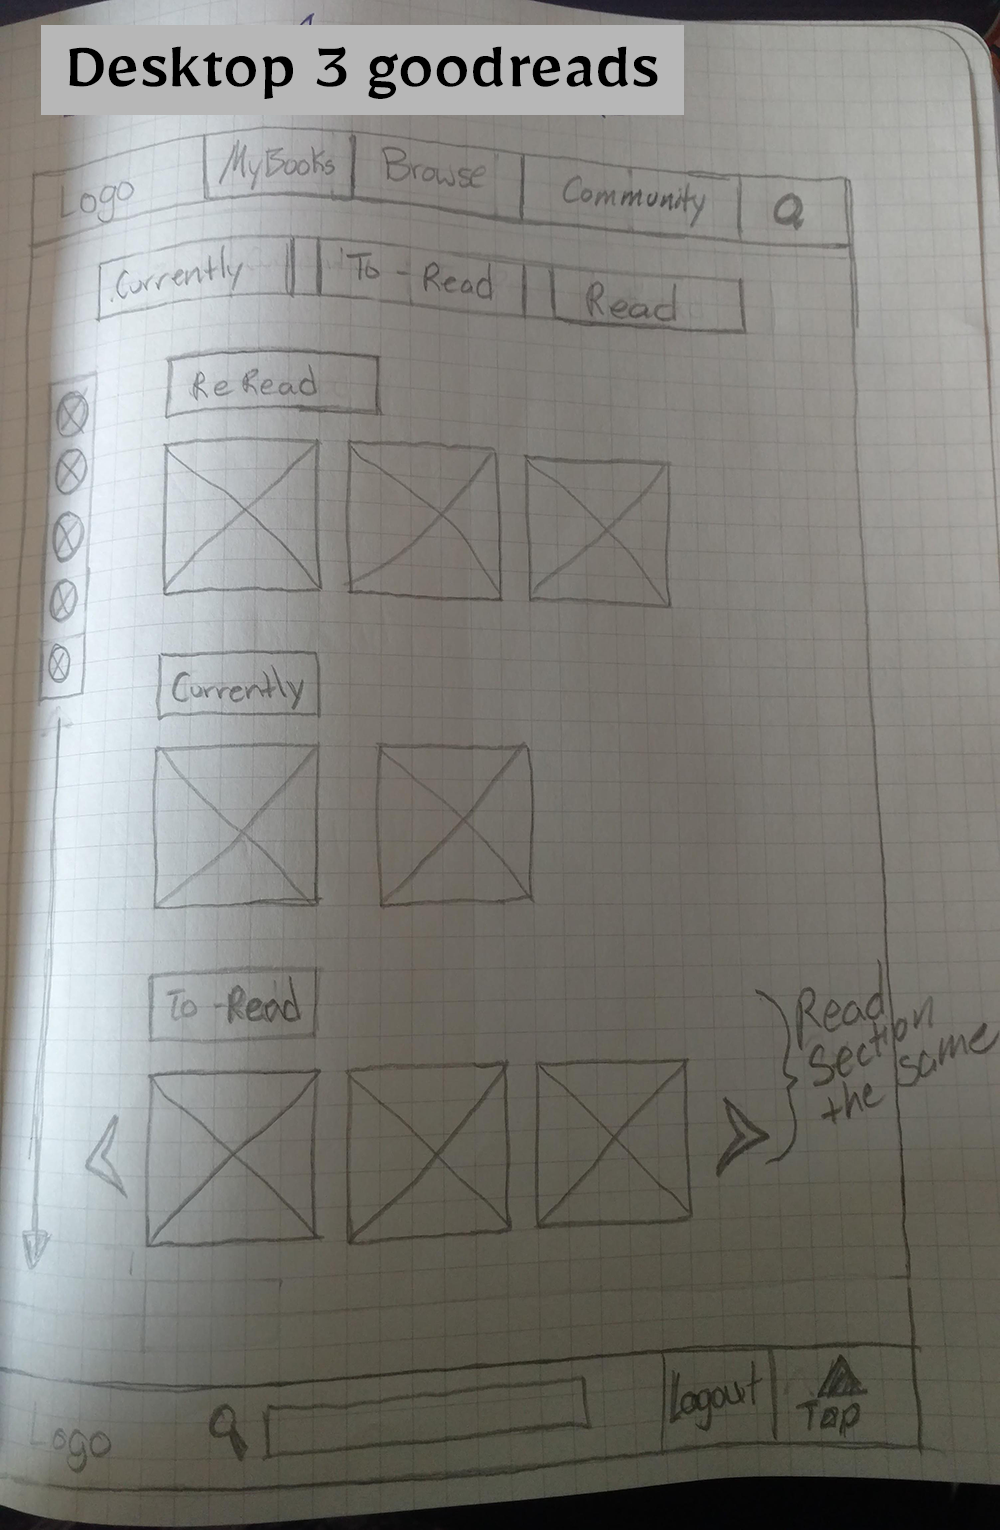 Desktop 3 goodreads
Logo
MyBooks
Browse
Community
Currently
To - Read
Read
ReRead
Currently
To -Read
Read
Section
the same
Logo
Logout
Top